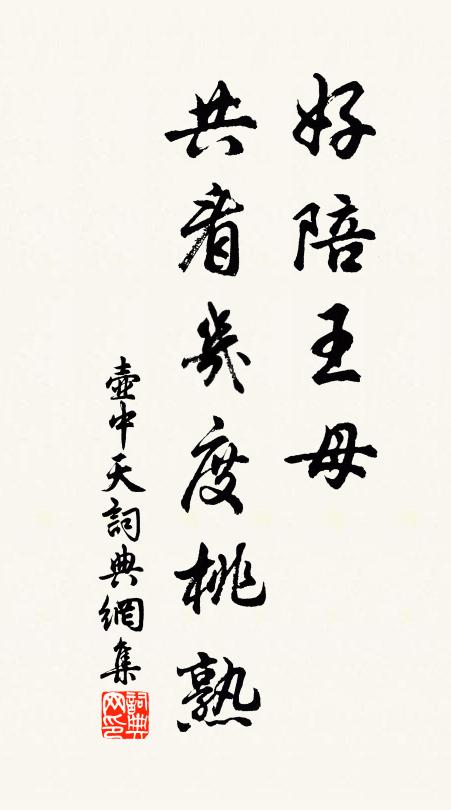 好陪王母
共看幾度桃熟
壺中天詞典網集
詞典网印